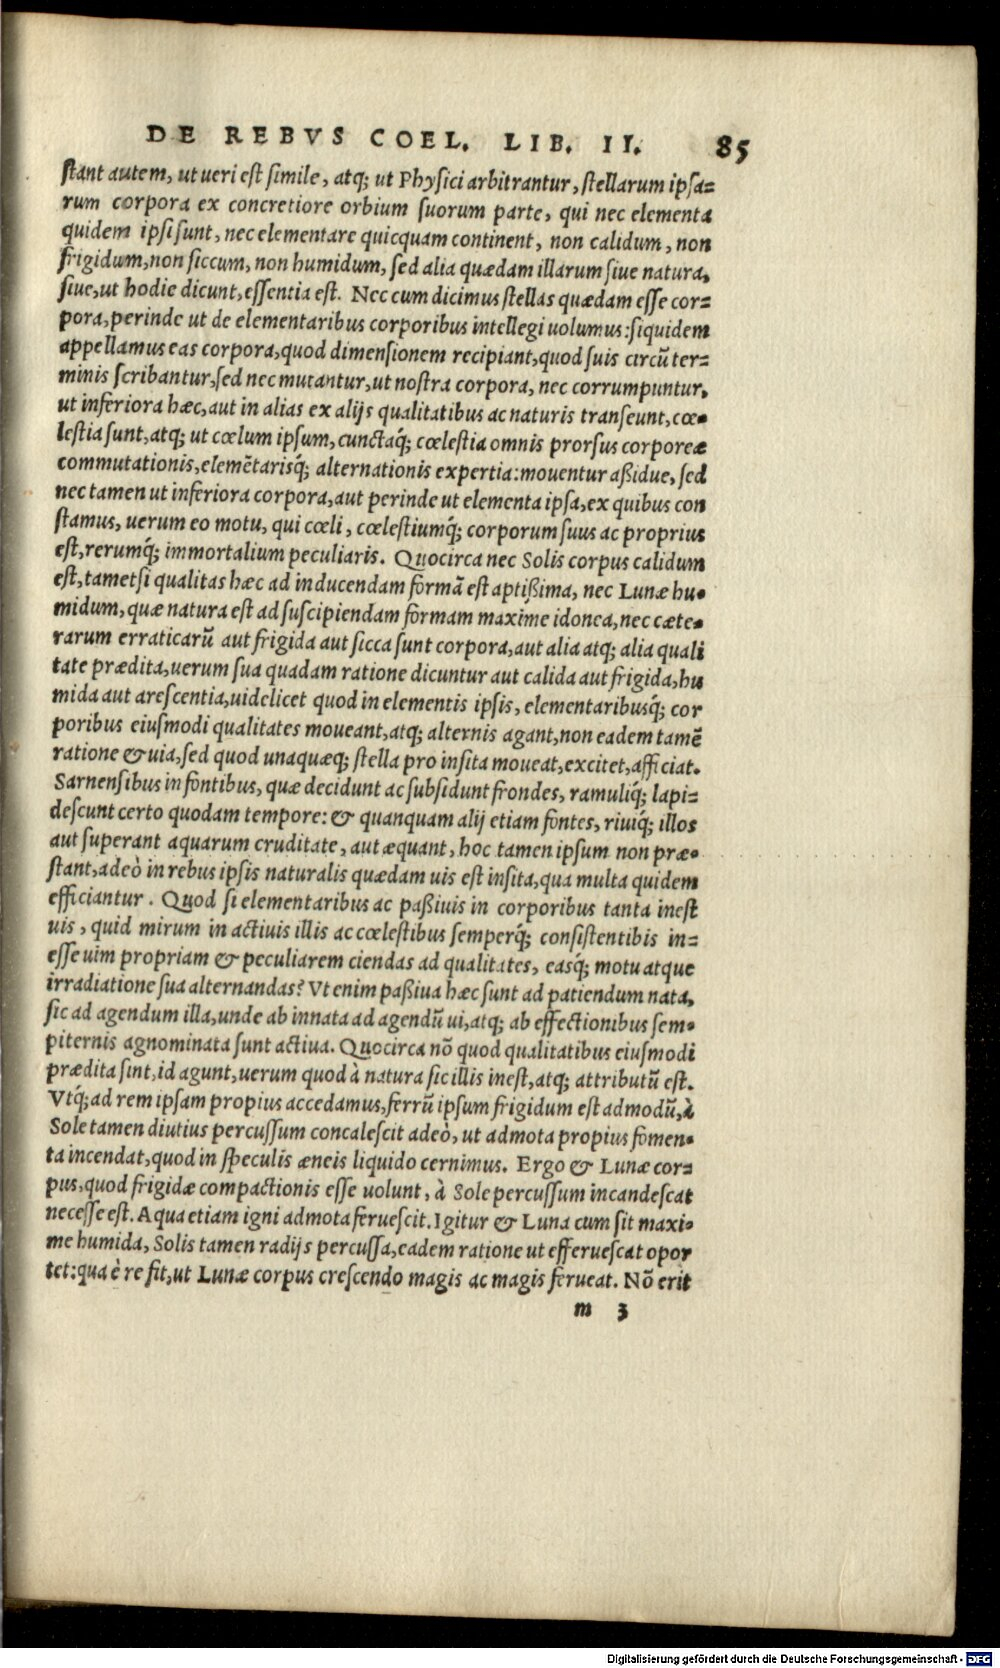 DE REBVS COEL. LIB. II. 85
stant autem, ut ueri est simile, atq; ut Physici arbitrantur, stellarum ipsa=
rum corpora ex concretiore orbium suorum parte, qui nec elementa
quidem ipsi sunt, nec elementare quicquam continent, non calidum, non
frigidum, non siccum, non humidum, sed alia quædam illarum siue natura,
siue, ut hodie dicunt, essentia est. Nec cum dicimus stellas quædam esse cor=
pora, perinde ut de elementaribus corporibus intellegi uolumus: siquidem
appellamus eas corpora, quod dimensionem recipiant, quod suis circũ ter=
minis scribantur, sed nec mutantur, ut nostra corpora, nec corrumpuntur,
ut inferiora hæc, aut in alias ex alijs qualitatibus ac naturis transeunt, cœ=
lestia sunt, atq; ut cœlum ipsum, cunctaq́; cœlestia omnis prorsus corporeæ
commutationis, elemẽtarisq́; alternationis expertia: mouentur aßidue, sed
nec tamen ut inferiora corpora, aut perinde ut elementa ipsa, ex quibus con
stamus, uerum eo motu, qui cœli, cœlestiumq́; corporum suus ac proprius
est, rerumq́; immortalium peculiaris. Quocirca nec Solis corpus calidum
est, tametsi qualitas hæc ad inducendam formã est aptißima, nec Lunæ hu=
midum, quæ natura est ad suscipiendam formam maxime idonea, nec cæte=
rarum erraticarũ aut frigida aut sicca sunt corpora, aut alia atq; alia quali
tate prædita, uerum sua quadam ratione dicuntur aut calida aut frigida, hu
mida aut arescentia, uidelicet quod in elementis ipsis, elementaribusq́; cor
poribus eiusmodi qualitates moueant, atq; alternis agant, non eadem tamẽ
ratione & uia, sed quod unaquæq; stella pro insita moueat, excitet, afficiat.
Sarnensibus in fontibus, quæ decidunt ac subsidunt frondes, ramuliq́; lapi=
descunt certo quodam tempore: & quanquam alij etiam fontes, riuiq́; illos
aut superant aquarum cruditate, aut æquant, hoc tamen ipsum non præ=
stant, adeò in rebus ipsis naturalis quædam uis est insita, qua multa quidem
efficiantur. Quod si elementaribus ac paßiuis in corporibus tanta inest
uis, quid mirum in actiuis illis ac cœlestibus semperq́; consistentibis in=
esse uim propriam & peculiarem ciendas ad qualitates, easq́; motu atque
irradiatione sua alternandas? Vt enim paßiua hæc sunt ad patiendum nata,
sic ad agendum illa, unde ab innata ad agendũ ui, atq; ab effectionibus sem=
piternis agnominata sunt actiua. Quocirca nõ quod qualitatibus eiusmodi
prædita sint, id agunt, uerum quod à natura sic illis inest, atq; attributũ est.
Vtq́; ad rem ipsam propius accedamus, ferrũ ipsum frigidum est admodũ, à
Sole tamen diutius percussum concalescit adeò, ut admota propius fomen=
ta incendat, quod in speculis æneis liquido cernimus. Ergo & Lunæ cor=
pus, quod frigidæ compactionis esse uolunt, à Sole percussum incandescat
necesse est. Aqua etiam igni admota feruescit. Igitur & Luna cum sit maxi=
me humida, Solis tamen radijs percussa, eadem ratione ut efferuescat opor
tet: qua è re fit, ut Lunæ corpus crescendo magis ac magis ferueat. Nõ erit
m 3
Digitalisierung gefördert durch die Deutsche Forschungsgemeinschaft - DFG